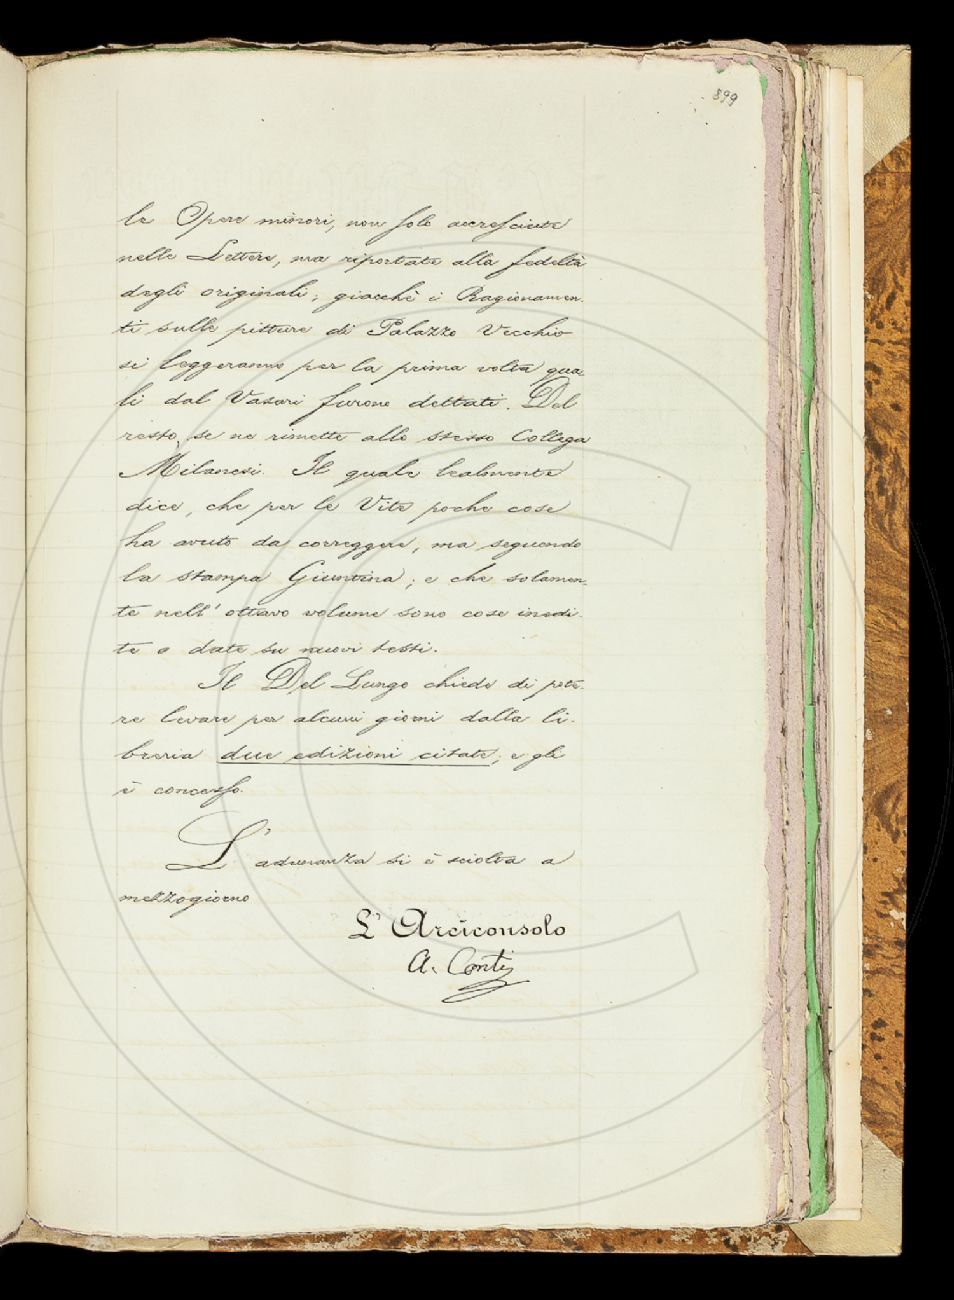 899
le Opere minori, non solo accresciute
nelle Lettere, ma riportate alla fedeltà
degli originali; giacchè i Ragionamen-
ti sulle pitture di Palazzo Vecchio
si leggeranno per la prima volta qua-
li dal Vasari furono dettati. Del
resto, se ne rimette allo stesso Collega
Milanesi. Il quale lealmente
dice, che per le Vite poche cose
ha avuto da correggere, ma seguendo
la stampa Giuntina; e che solamen-
te nell'ottavo volume sono cose inedi-
te o date su nuovi testi.
Il Del Lungo chiede di pote-
re levare per alcuni giorni dalla li-
breria due edizioni citate; e gli
è concesso.
L'adunanza si è sciolta a
mezzogiorno
L'Arciconsolo
A. Conti